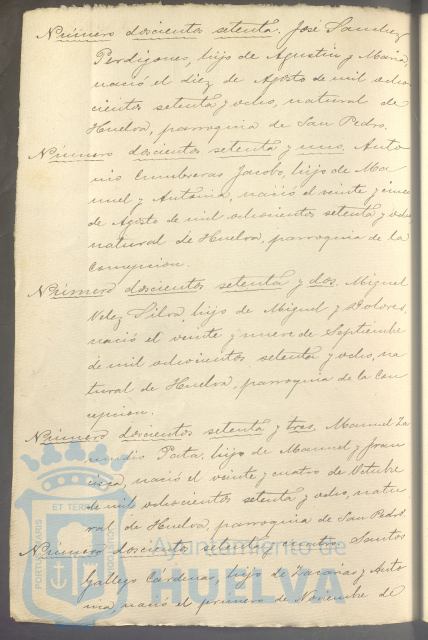 Número doscientos setenta. José Sanchez
Perdigones, hijo de Agustin y Maria,
nació el diez de Agosto de mil ocho
cientos setenta y ocho, natural de
Huelva, parroquia de San Pedro.
Número doscientos setenta y uno. Anto
nio Cumbreras Jacobo, hijo de Ma
nuel y Antonia, nació el veinte y cinco
de Agosto de mil ochocientos setenta y ocho
natural de Huelva, parroquia de la
Concepcion.
Número doscientos setenta y dos. Miguel
Velez Silva, hijo de Miguel y Dolores,
nació el veinte y nueve de Septiembre
de mil ochocientos setenta y ocho, na
tural de Huelva, parroquia de la Con
cepcion.
Número doscientos setenta y tres. Manuel
Pata, hijo de Manuel y Fran
cisca, nació el veinte y cuatro de Octubre
de mil ochocientos setenta y ocho, natu
ral de Huelva, parroquia de San Pedro.
Número doscientos setenta y cuatro. Santos
Gallego Cárdenas, hijo de Zacarias y Anto
nia, nació el primero de Noviembre de
PORTUS MARIS ET TERRAE CUSTODIA
Ayuntamiento de
HUELVA